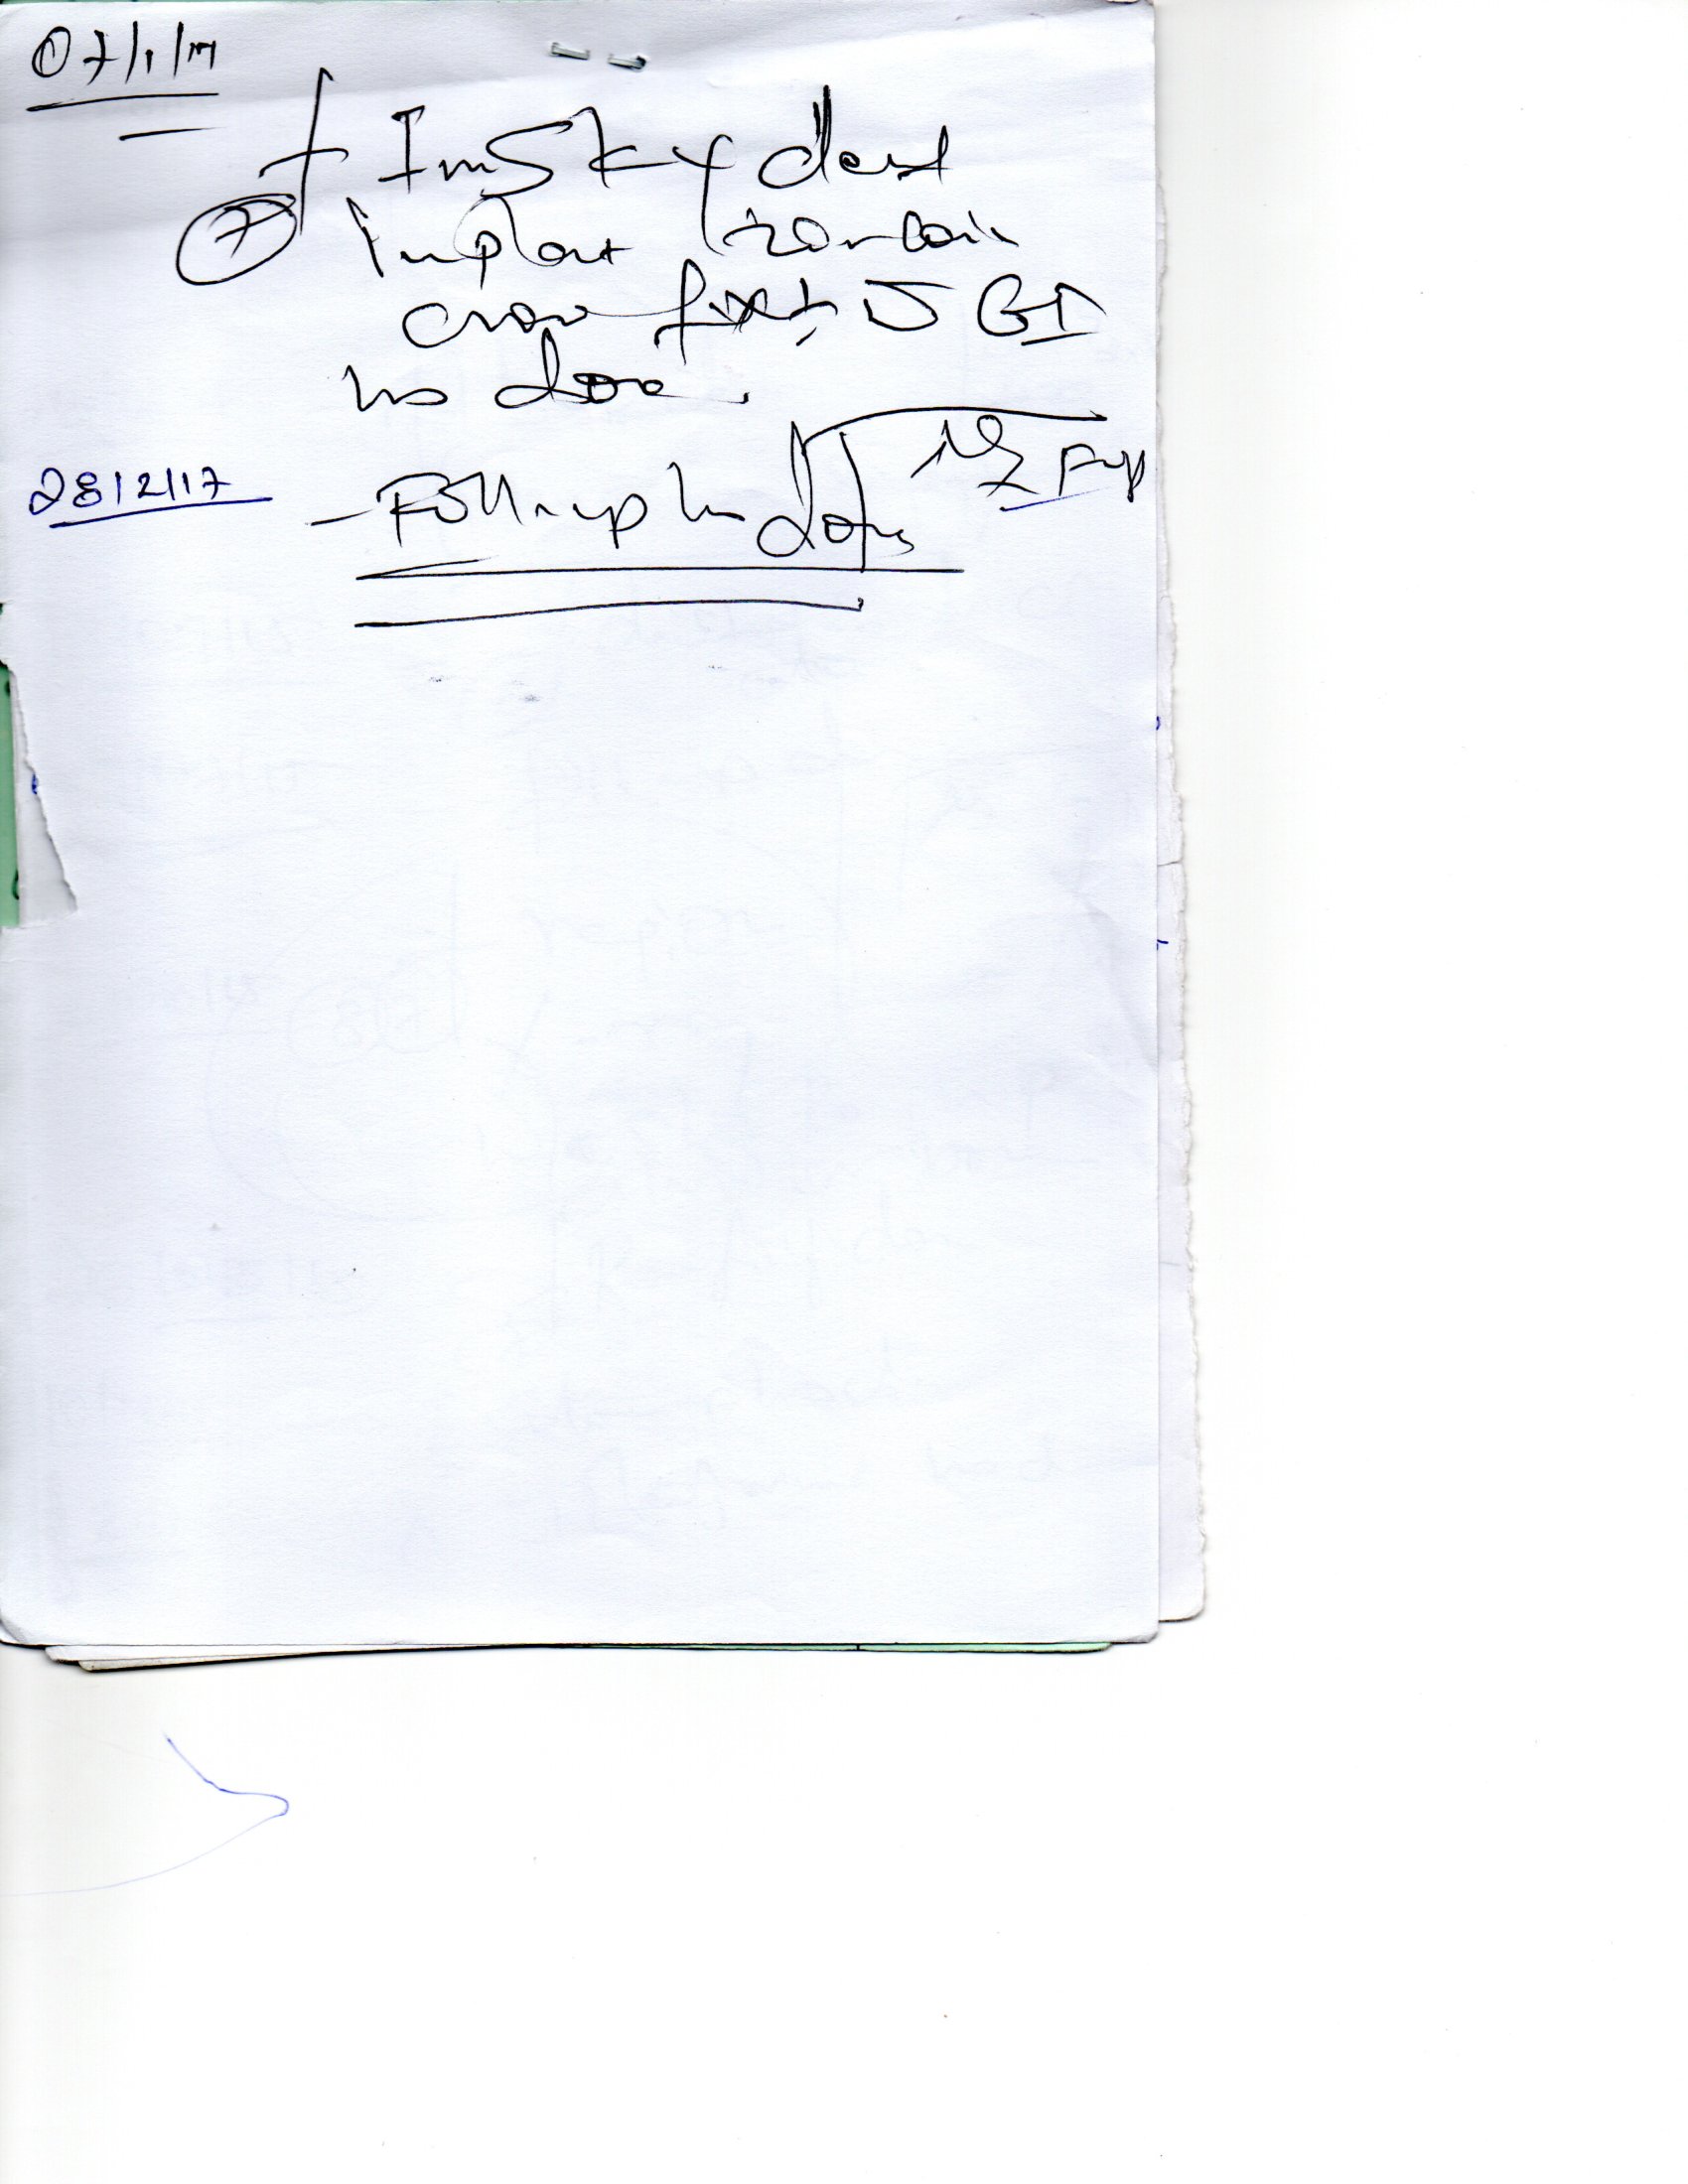 07/1/17
7 In Sky dent
implant zirconia
crown fixed GI
has done.
28/2/17 - Follow up has done